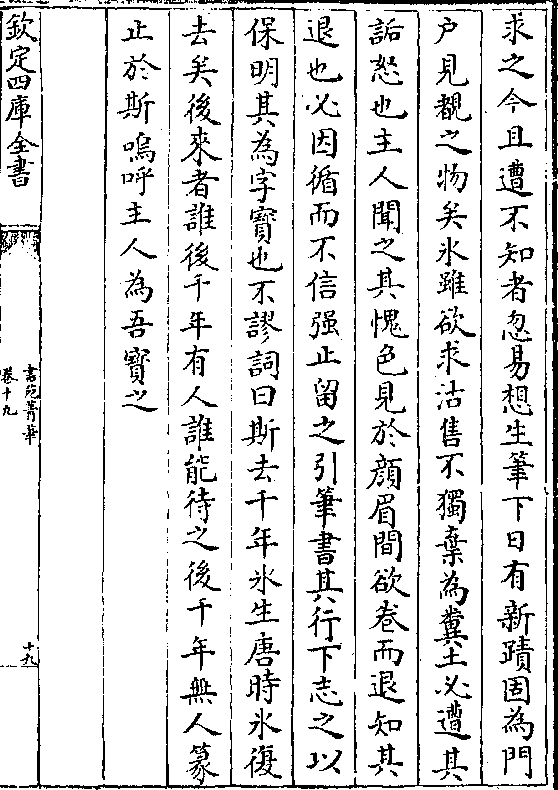 求之今且遭不知者忽易想生筆下日有新蹟固為門
户見覩之物矣氷雖欲求沽售不獨棄為糞土必遭其
詬怒也主人聞之其愧色見於顔眉間欲卷而退知其
退也必因循而不信强止留之引筆書其行下志之以
保明其為字寳也不謬詞曰斯去千年氷生唐時氷復
去矣後來者誰後千年有人誰能待之後千年無人篆
止於斯嗚呼主人為吾寳之
欽定四庫全書
書苑菁華
卷十九
十九